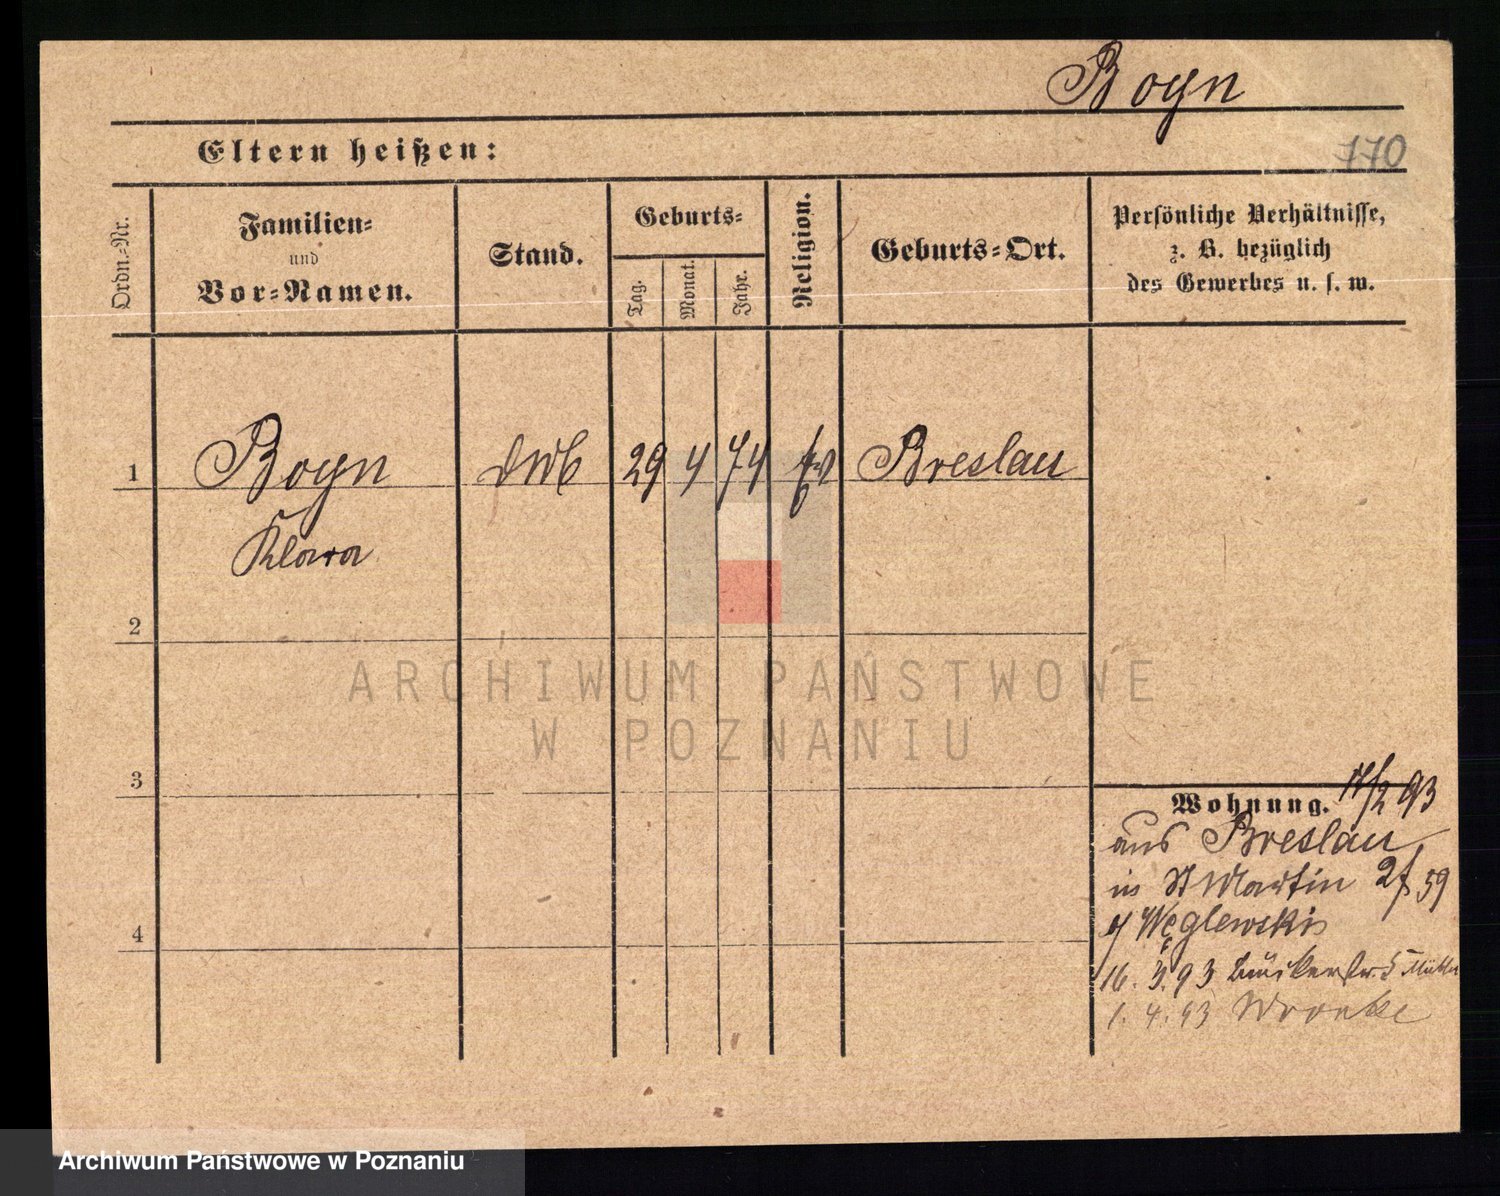 Bogn
Eltern heißen:
170
Ordn.-Nr.
Familien-
und
Vor-Namen.
Stand.
Geburts-
Tag.
Monat.
Jahr.
Religion.
Geburts-Ort.
Persönliche Verhältnisse,
z. B. bezüglich
des Gewerbes u. s. w.
1
Bogn
29 4 74 Ev Breslau
Klara
2
3
4
Wohnung. 17/2 93
aus Breslau
in St Martin 59
Węglewski
16. 3. 93
1. 4. 93 Wronke
ARCHIWUM PAŃSTWOWE
W POZNANIU
Archiwum Państwowe w Poznaniu